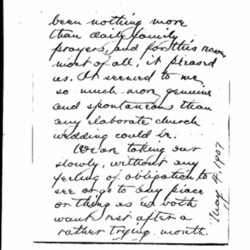 been nothing more
than daily family
prayers, and for this reason
most of all, it pleased
us. It seemed to me
so much more genuine
and spontaneous than
any elaborate church
wedding could be.
We are taking our
slowly, without any
feeling of obligation to
see or go to any place
or thing as we both
want rest after a
rather trying month.
May 4, 1907